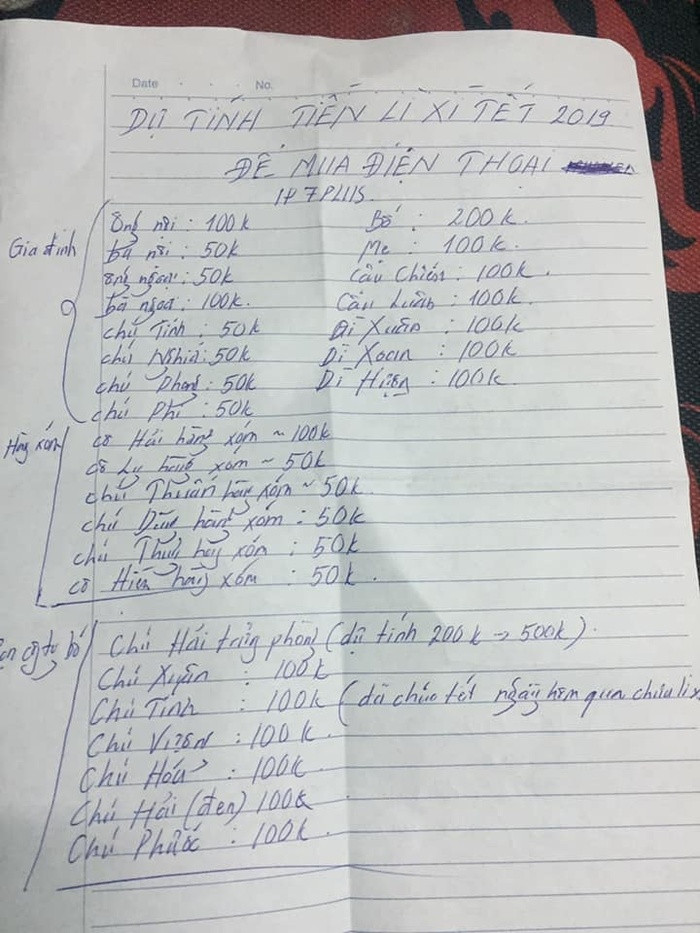 Date . . . No.
DỰ TÍNH TIỀN LÌ XÌ TẾT 2019
ĐỂ MUA ĐIỆN THOẠI
IP 7 PLUS.
Gia đình
ông nội : 100k
bà nội : 50k
ông ngoại : 50k
bà ngoại : 100k.
chú Tính : 50k
chú Nghĩa : 50k
chú Phong : 50k
chú Phi : 50k
Bố : 200k.
Mẹ : 100k.
Cậu Chiến : 100k.
Cậu Luân : 100k.
Dì Xuân : 100k
Dì Xoan : 100k
Dì Hường : 100k
Hàng xóm
cô Hải hàng xóm ~ 100k
cô Ly hàng xóm ~ 50k
chú Thuấn hàng xóm ~ 50k.
chú Dũng hàng xóm : 50k
chú hàng xóm : 50k
cô Hiền hàng xóm : 50k.
cty bố
Chú Hải trưởng phòng (dự tính 200k → 500k).
Chú Xuyên : 100k
Chú Tính : 100k (đã chúc tết ngày hôm qua chưa lì x
Chú Vượng : 100k.
Chú Hóa : 100k.
Chú Hải (đen) 100k
Chú Phước : 100k.